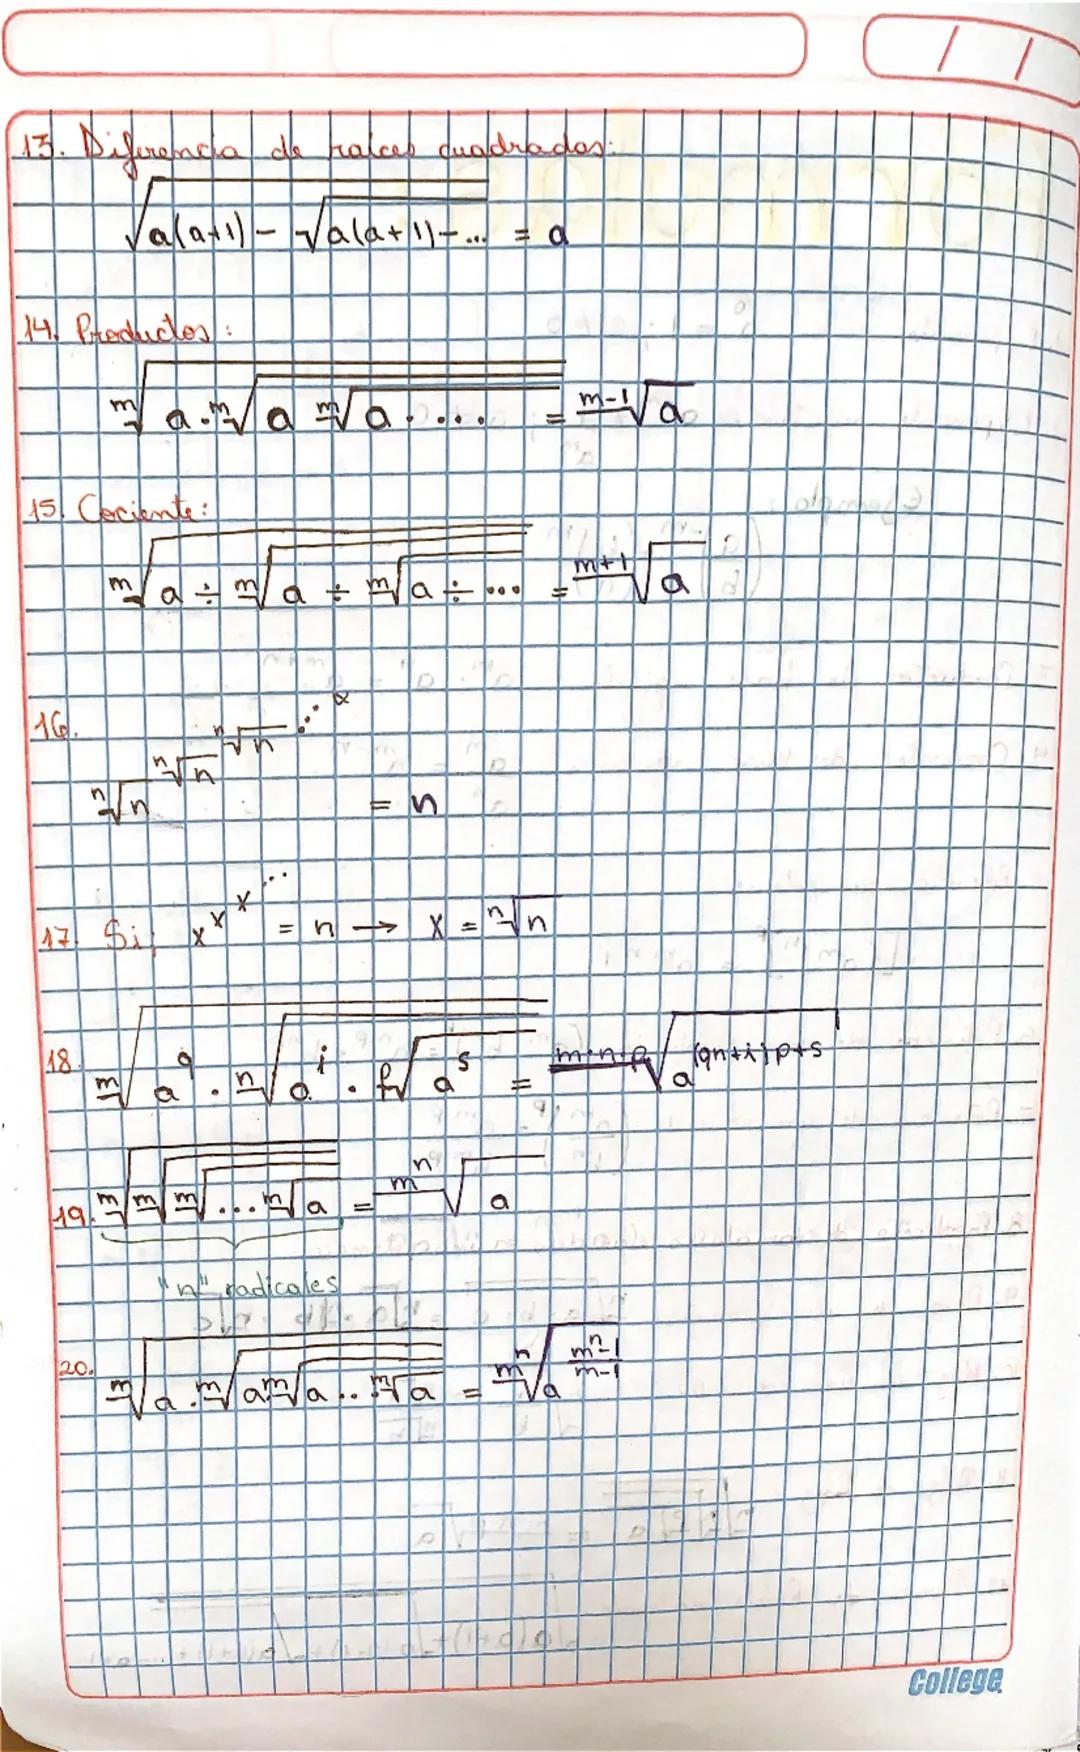 13. Diferencia de raíces cuadradas:
√(a(a+1) - √(a(a+1) - ...)) = a
14. Productos:
ᵐ√(a·ᵐ√(a ᵐ√(a· ....))) = ᵐ⁻¹√a
15. Cociente:
ᵐ√(a ÷ ᵐ√(a ÷ ᵐ√(a ÷ ...))) = ᵐ⁺¹√a
16. ⁿ√n^(ⁿ√n^(ⁿ√n^(⋰^α))) = n
17. Si; x^(x^(x^⋰)) = n → x = ⁿ√n
18. ᵐ√(a^q · ⁿ√(a^i · ᵖ√(a^s))) = ᵐ·ⁿ·ᵖ√(a^((qn+i)p+s))
19. ᵐ√(ᵐ√(ᵐ√(... ᵐ√a))) = (m^n)√a
"n" radicales
20. ᵐ√(a·ᵐ√(a ᵐ√(a .. ᵐ√a))) = (m^n)√(a^((m^n-1)/(m-1)))
College